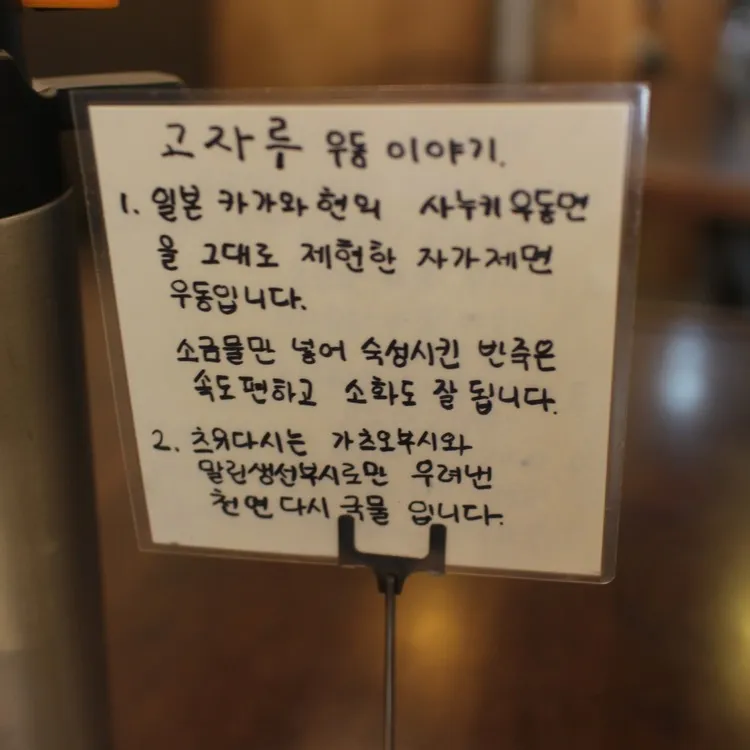 고자루 우동 이야기.
1. 일본 카가와 현의 사누키 우동면
을 그대로 제현한 자가제면
우동입니다.
소금물만 넣어 숙성시킨 반죽은
속도 편하고 소화도 잘 됩니다.
2. 츠유다시는 가츠오부시와
말린생선부시로만 우려낸
천연다시 국물 입니다.